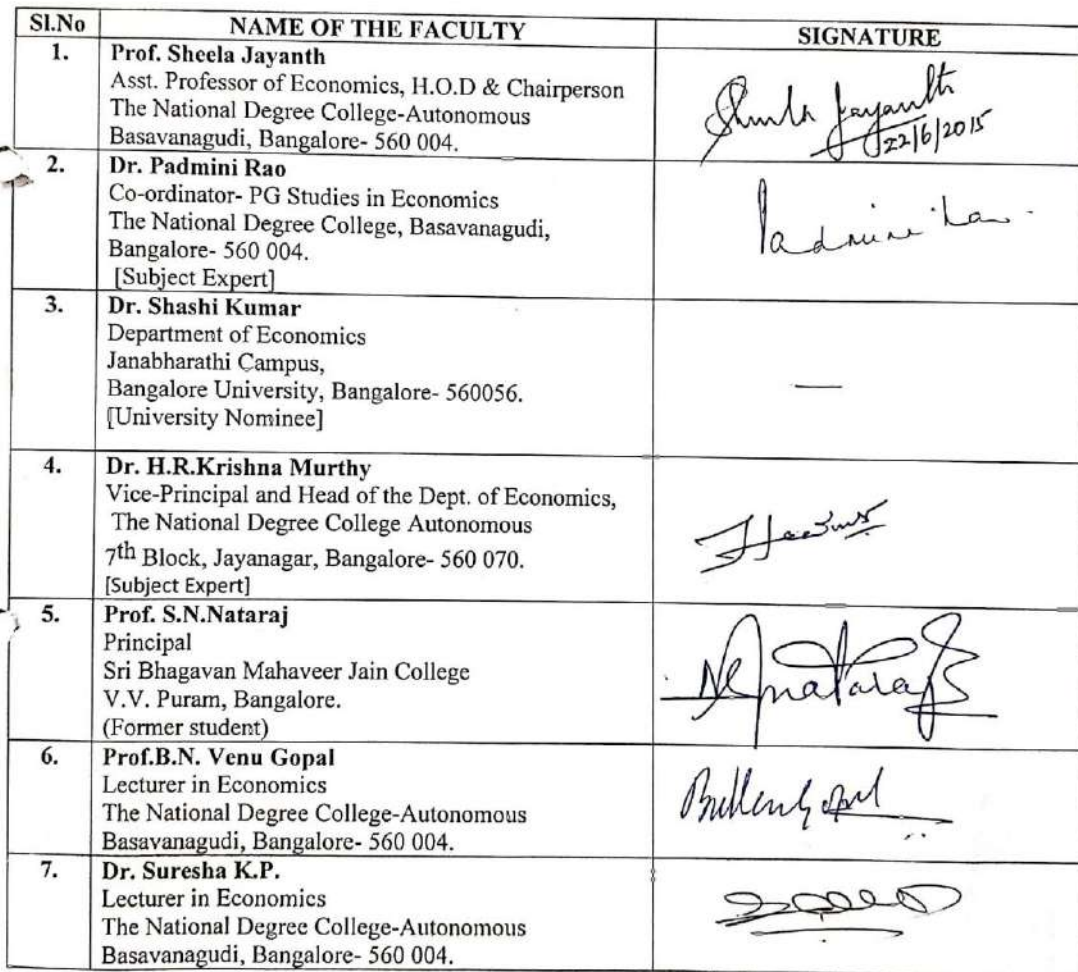 Sl.No NAME OF THE FACULTY SIGNATURE
1. Prof. Sheela Jayanth
Asst. Professor of Economics, H.O.D & Chairperson
The National Degree College-Autonomous
Basavanagudi, Bangalore- 560 004.
Sheela Jayanth
22/6/2015
2. Dr. Padmini Rao
Co-ordinator- PG Studies in Economics
The National Degree College, Basavanagudi,
Bangalore- 560 004.
[Subject Expert]
Padmini Rao
3. Dr. Shashi Kumar
Department of Economics
Janabharathi Campus,
Bangalore University, Bangalore- 560056.
[University Nominee]
—
4. Dr. H.R.Krishna Murthy
Vice-Principal and Head of the Dept. of Economics,
The National Degree College Autonomous
7th Block, Jayanagar, Bangalore- 560 070.
[Subject Expert]
5. Prof. S.N.Nataraj
Principal
Sri Bhagavan Mahaveer Jain College
V.V. Puram, Bangalore.
(Former student)
6. Prof.B.N. Venu Gopal
Lecturer in Economics
The National Degree College-Autonomous
Basavanagudi, Bangalore- 560 004.
7. Dr. Suresha K.P.
Lecturer in Economics
The National Degree College-Autonomous
Basavanagudi, Bangalore- 560 004.